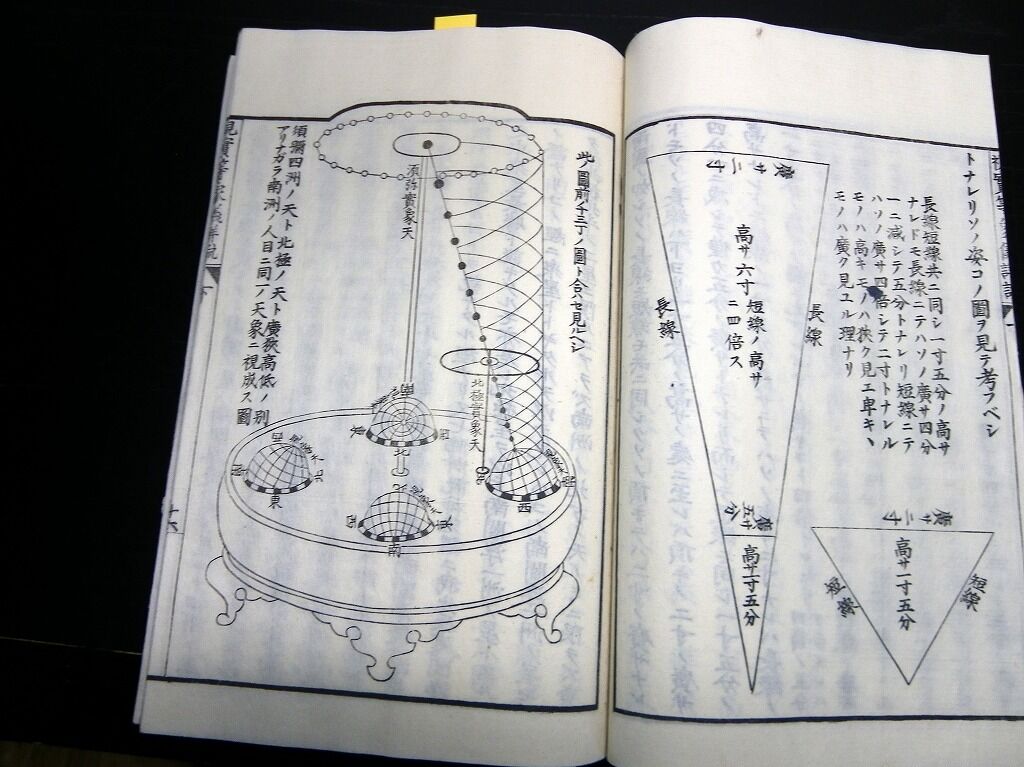 トナレリソノ姿コノ圖ヲ見テ考フベシ
長線短線共ニ同シ一寸五分ノ高サ
ナレドモ長線ニテハソノ廣サ四分
一ニ減シテ五分トナレリ短線ニテ
ハソノ廣サ四倍シテ二寸トナレル
モノハ高キモノハ狹ク見エ卑キヽ
モノハ廣ク見ユル理ナリ
廣サ二寸
長線
高サ六寸短線ノ高サ
ニ四倍ス
長線
廣サ五分
高サ一寸五分
廣サ二寸
短線
高サ一寸五分
短線
此圖前十三丁ノ圖ト合ハセ見ルベシ
須弥實象天
北極實象天
西
北
東
南
東
西
北
南
西
須彌四洲ノ天ト北極ノ天ト廣狹高低ノ別
アリナガラ南洲ノ人目ニ同一ノ天象ニ視成ス圖
下
十六